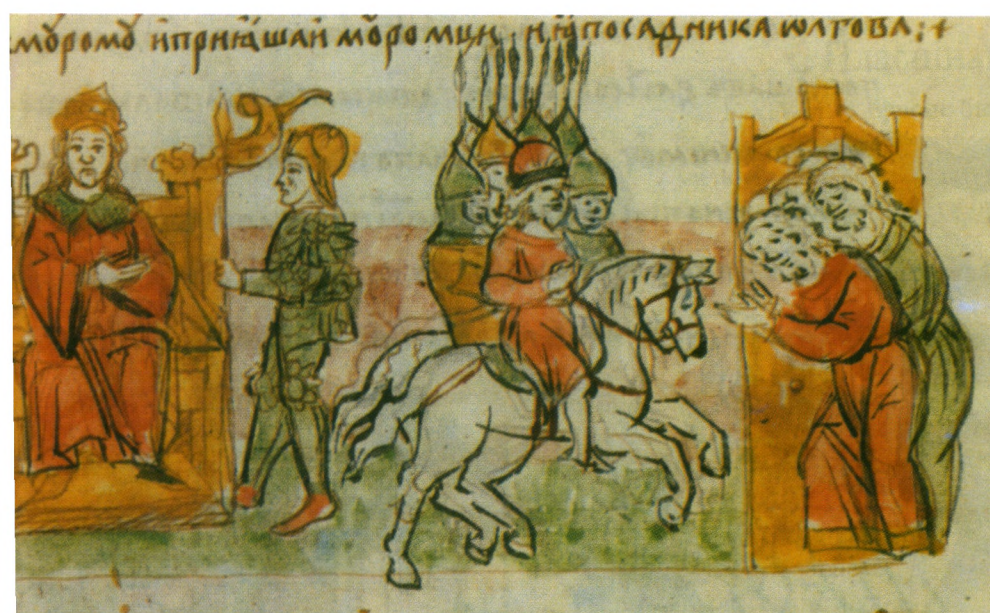 моромꙋ ипринѧшаи моромци · и ꙗ посадника ѡлгова:+